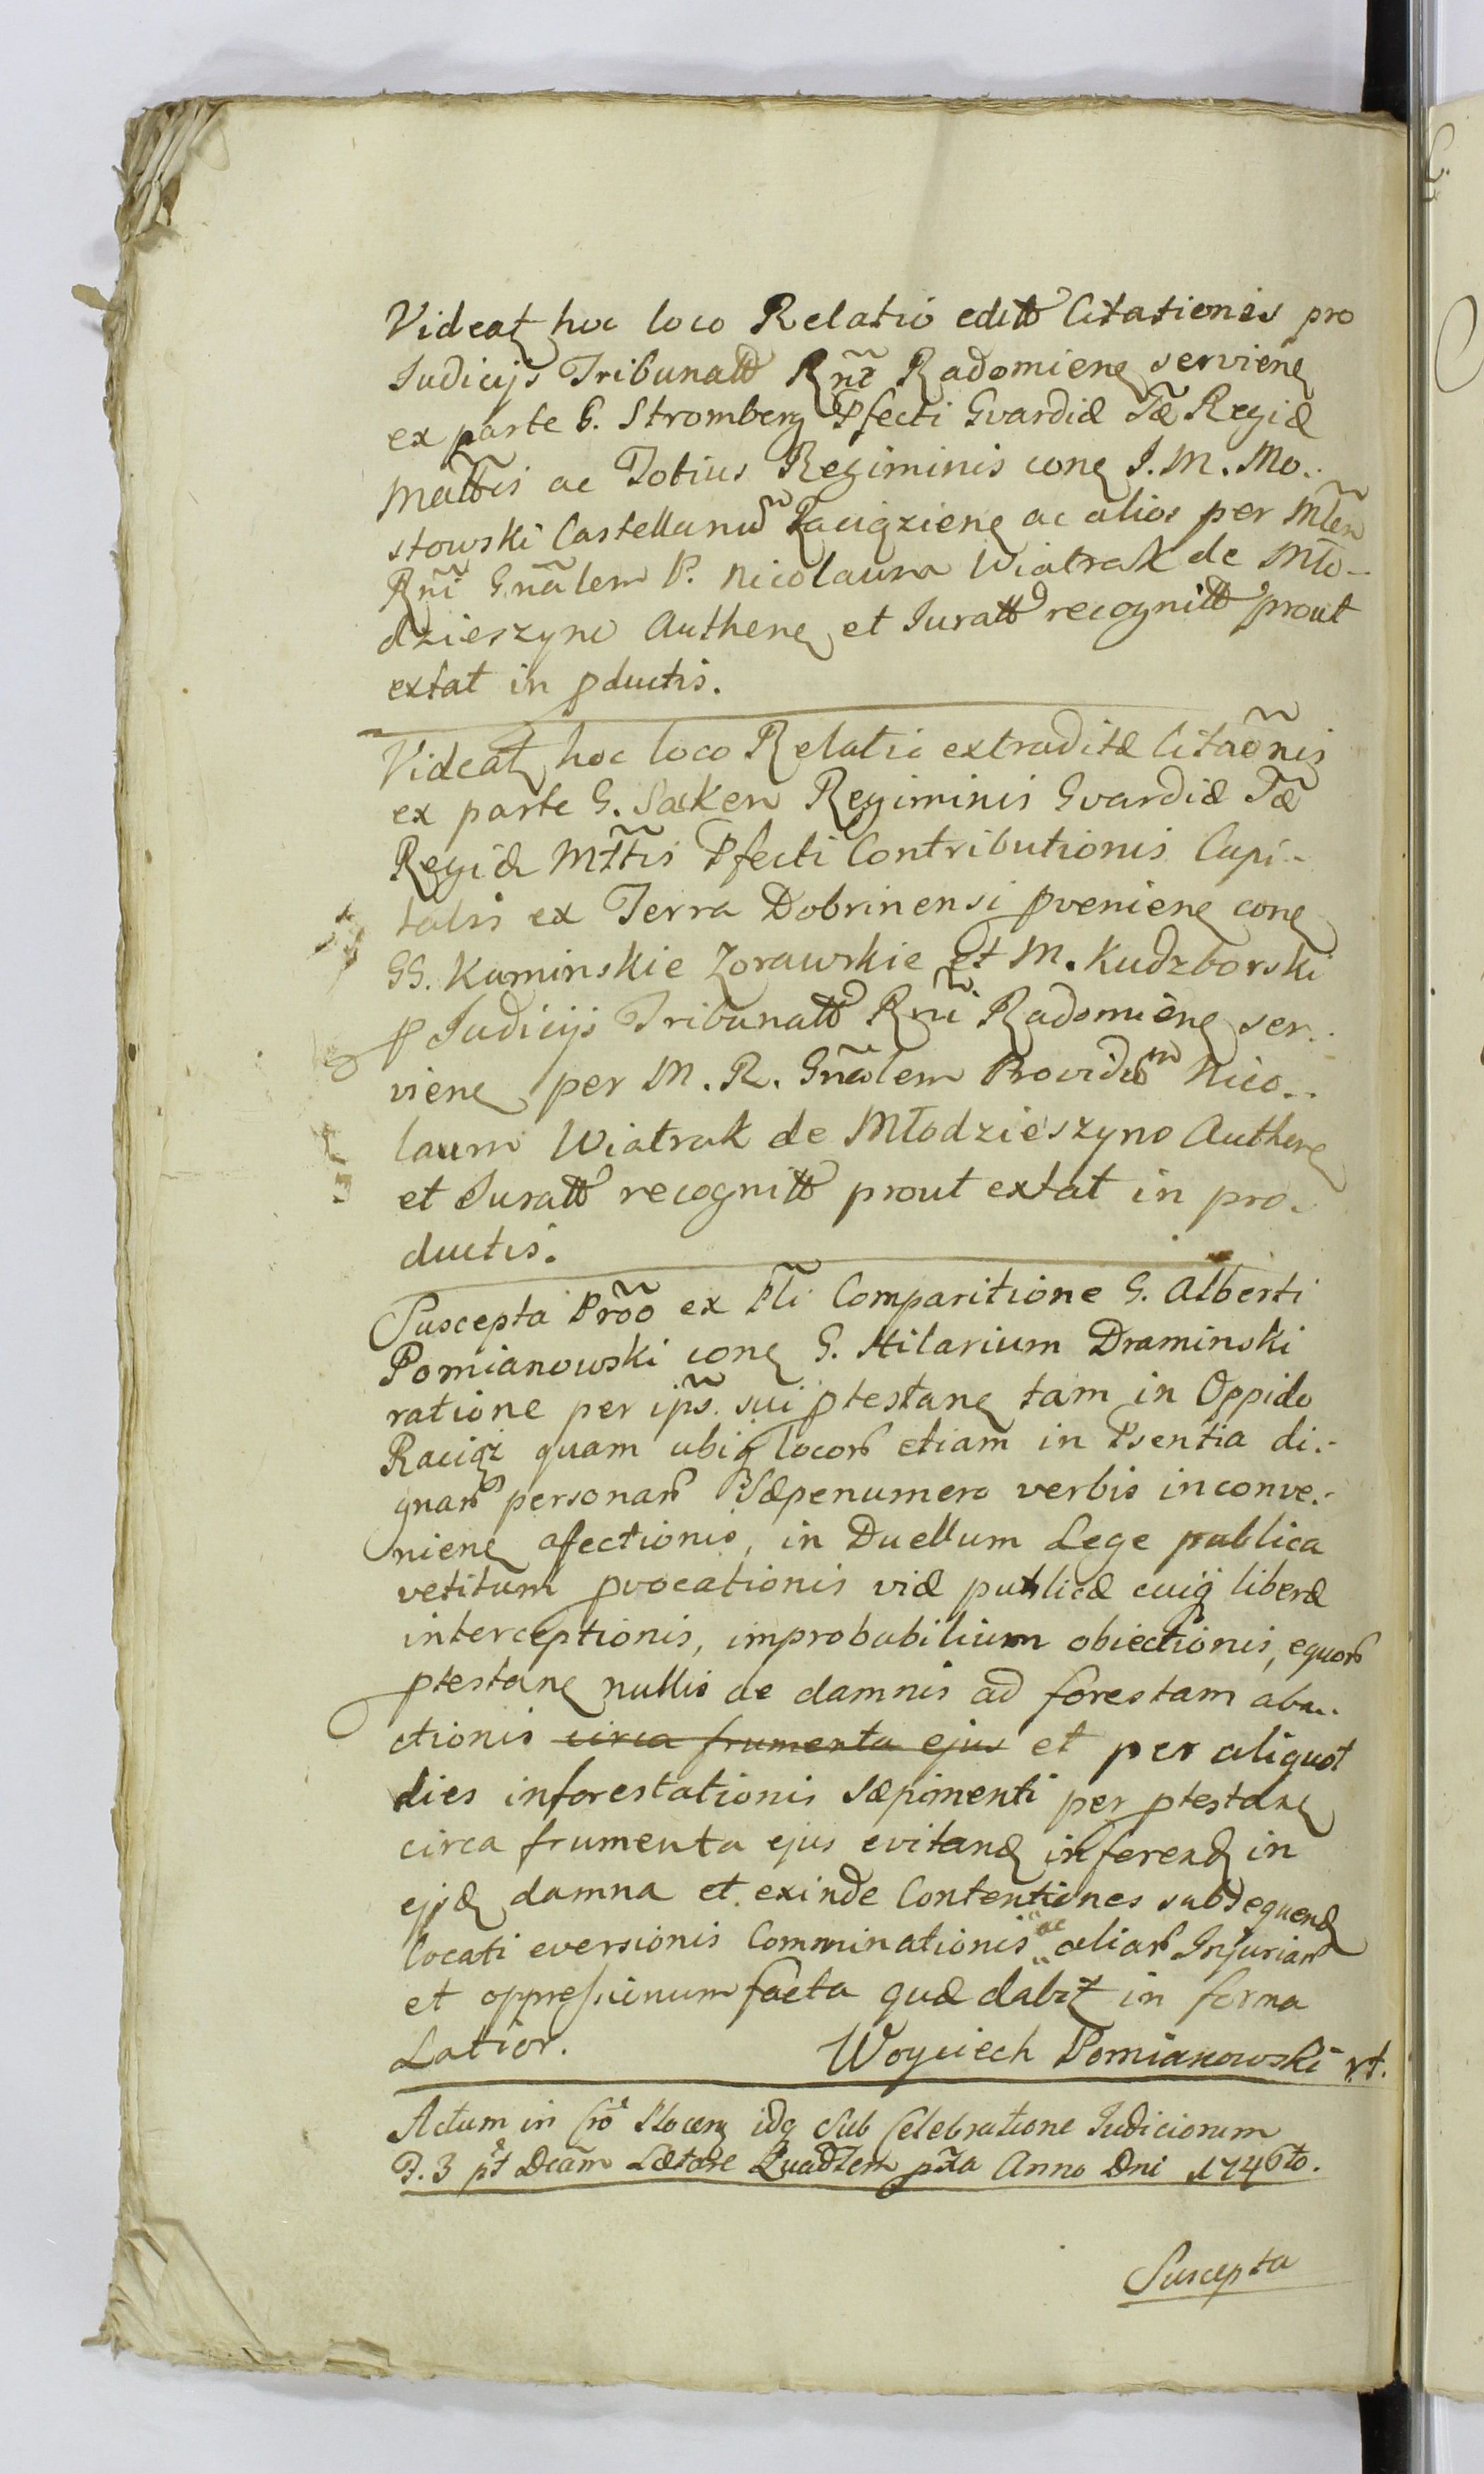 Videat hoc loco Relatio editt Citationis pro
Judicijs Tribunatt Rñi Radomiens serviens
ex parte G. Stromberg Pfecti Gvardiæ Sæ Regiæ
Mattis ac Totius Regiminis cong J. M. Mo..
stowski Castellanum Raciąziens ac alios per Mlen
Rñi Gñalem P. Nicolaum Wiatrak de Mło–
dzieszyno Authens et Juratt recognitt prout
extat in pductis.
Videat hoc loco Relatio extraditæ Citaõnis
ex parte G. Sacken Regiminis Gvardiæ Sæ
Regiæ Mttis Pfecti Contributionis Capi–
talis ex Terra Dobrinensi pveniens cong
GG. Kaminskie Zorawskie et M. Kudzborski
p Judicijs Tribunatt Rñi Radomiens ser..
viens per M. R. Gñalem Providum Nico..
laum Wiatrak de Młodzieszyno Authens
et Juratt recognitt prout extat in pro.
ductis.
Suscepta Prõo ex Pli Comparitione G. Alberti
Pomianowski cong G. Hilarium Draminski
ratione per ips. sui ptestang tam in Oppido
Raciąż quam ubiq locor etiam in Psentia di.-
gnar personar Sæpenumero verbis inconve.-
niens afectionis, in Duellum Lege publica
vetitum pvocationis viæ publicæ cuiq liberæ
interceptionis, improbabilium obiectionis, equor
ptestang nullis ac damnis ad forestam aba..
ctionis circa frumenta ejus et per aliquot
dies inforestationis sæpimenti per ptestang
circa frumenta ejus evitand inferend in
ejsd damna et exinde Contentiones subsequend
locati eversionis Comminationis ac aliar Injuriar
et oppressionum facta quæ dabit in forma
Latior. Woyciech Pomianowski rt.
Actum in Cro Plocens idq Sub Celebratione Judiciorum
P. 3 pt Dcam Lætare Quadlem pxa Anno Dni 1746to.
Suscepta